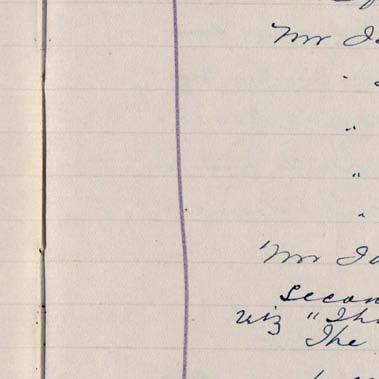 Mr Ja
"
"
"
"
Mr Ja
secon
viz "Th
The